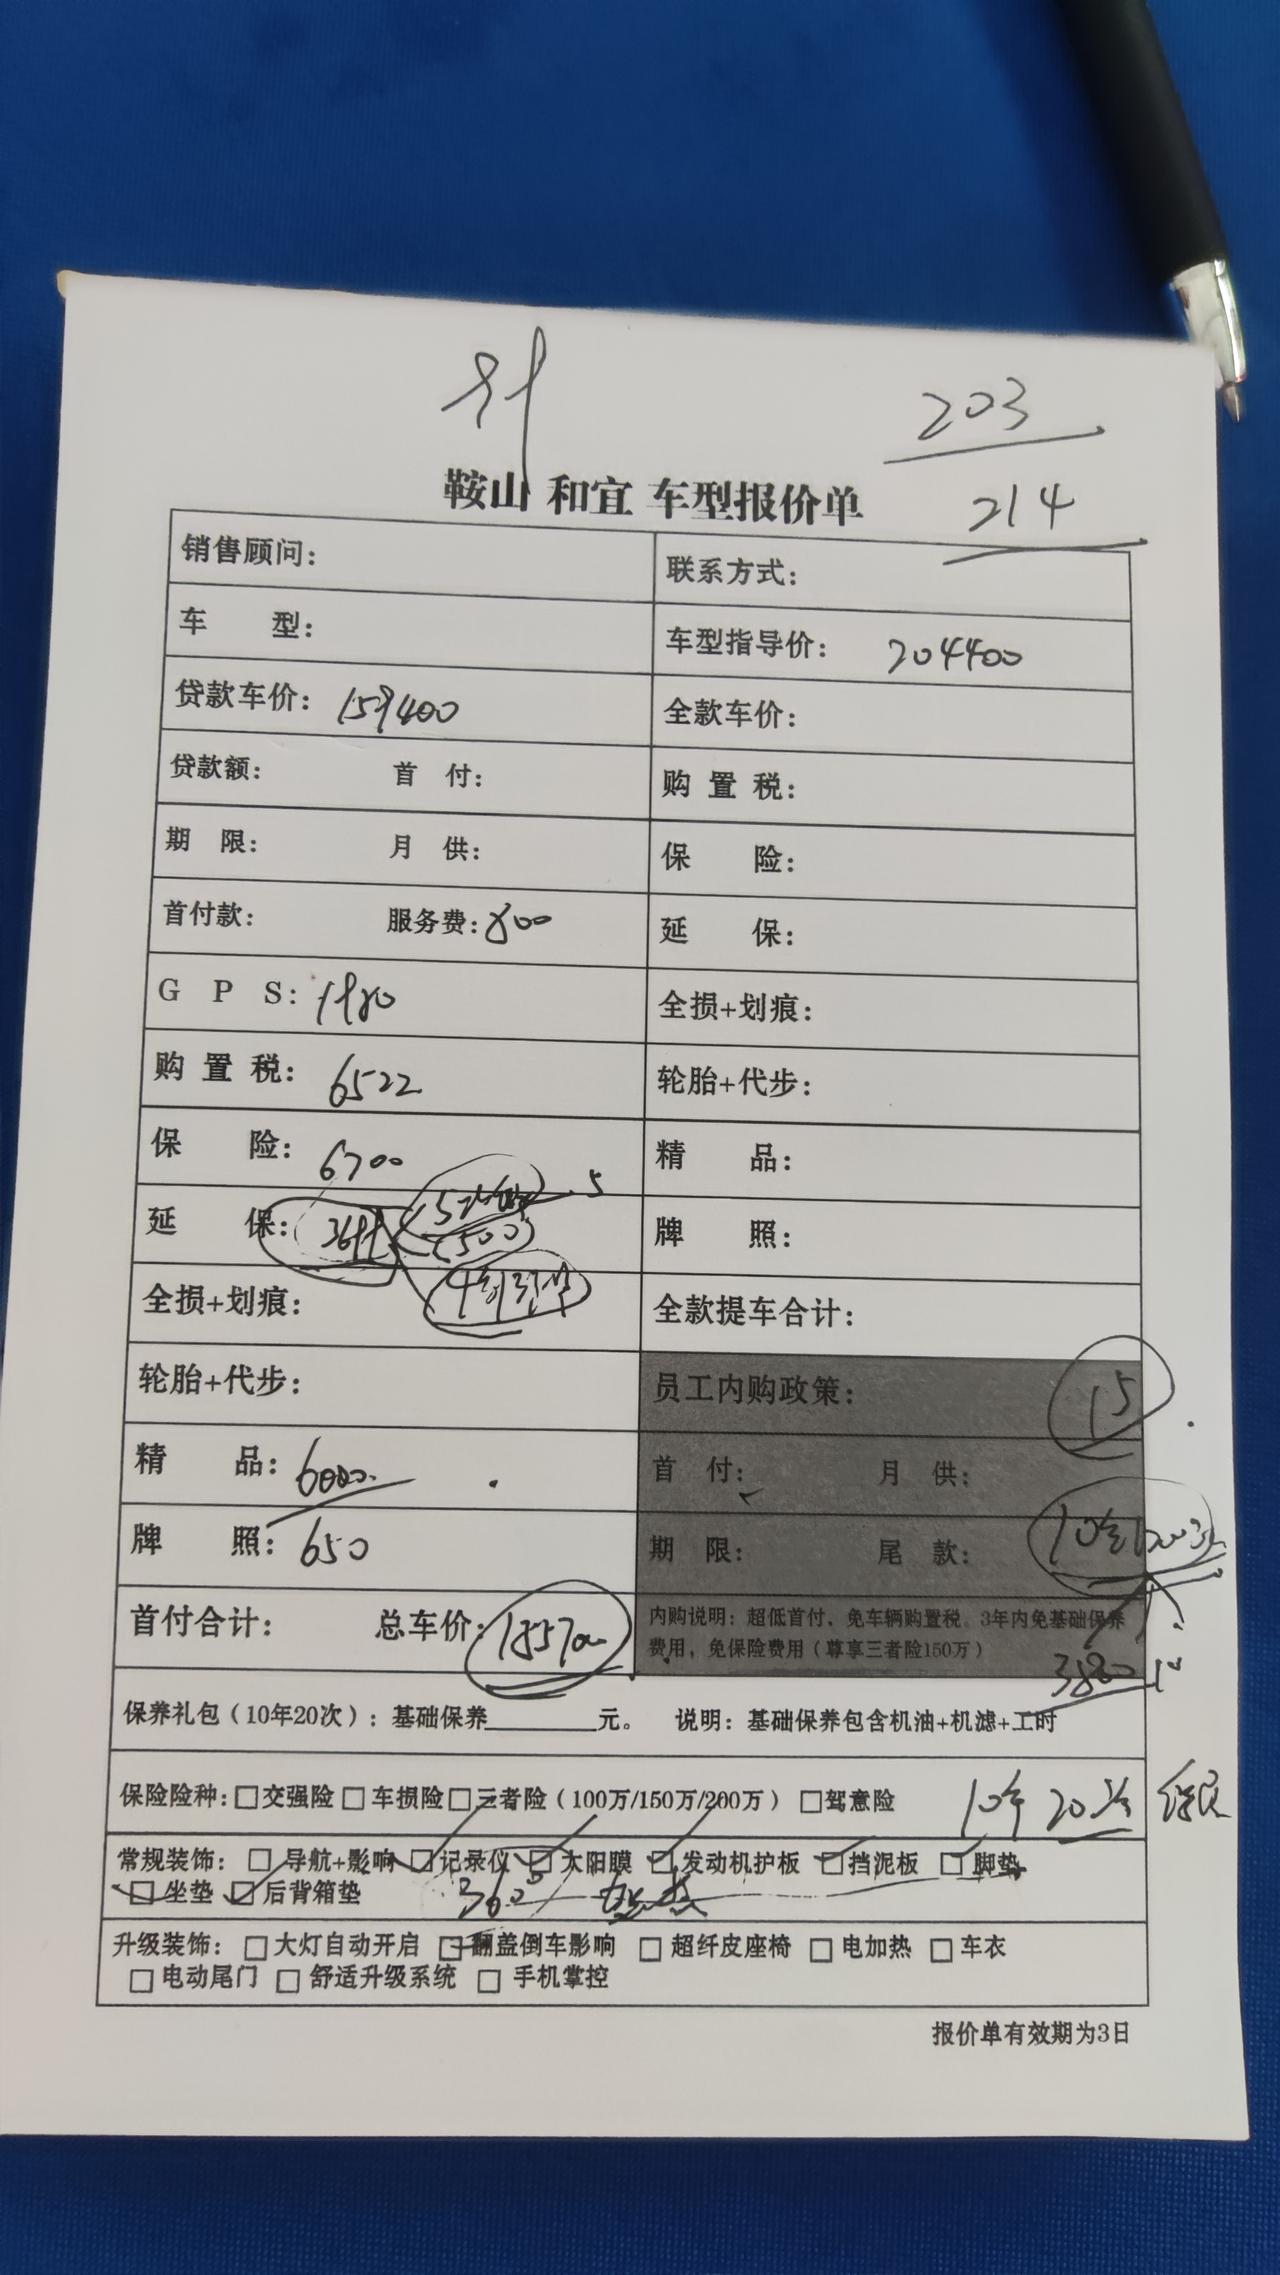 203
214
鞍山 和宜 车型报价单
销售顾问： 联系方式：
车 型： 车型指导价： 204400
贷款车价： 159400 全款车价：
贷款额： 首 付： 购 置 税：
期 限： 月 供： 保 险：
首付款： 服务费：800 延 保：
G P S： 1980 全损+划痕：
购 置 税： 6522 轮胎+代步：
保 险： 6700 精 品：
延 保： 1500 5 牌 照：
全损+划痕： 全款提车合计：
轮胎+代步： 员工内购政策： 15
精 品： 6000 首 付： 月 供：
牌 照： 650 期 限： 尾 款： 10年
首付合计： 总车价： 185700 内购说明：超低首付，免车辆购置税。3年内免基础保养
费用，免保险费用（尊享三者险150万）
3880
保养礼包（10年20次）：基础保养________元。 说明：基础保养包含机油+机滤+工时
保险险种：□交强险 □车损险 □三者险（100万/150万/200万） □驾意险 10年 20
常规装饰：□ 导航+影响 □记录仪 □太阳膜 □发动机护板 □挡泥板 □脚垫
□坐垫 □后背箱垫 360°
升级装饰：□大灯自动开启 □翻盖倒车影响 □超纤皮座椅 □电加热 □车衣
□电动尾门 □舒适升级系统 □手机掌控
报价单有效期为3日